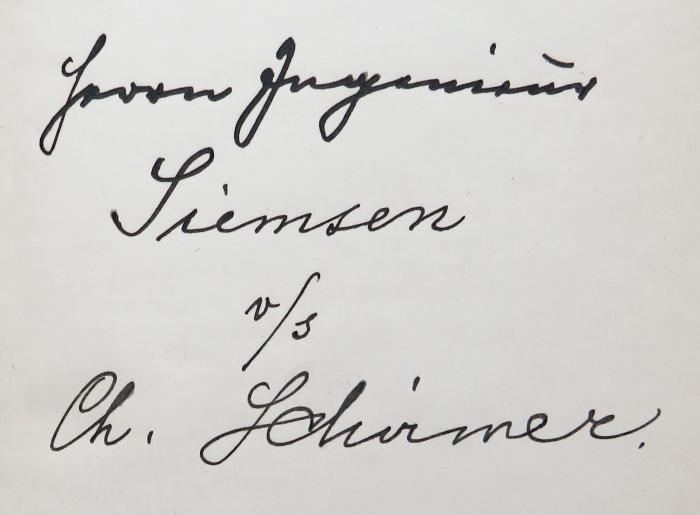 Herrn Ingenieur
Siemsen
v/s
Ch. Schirmer.